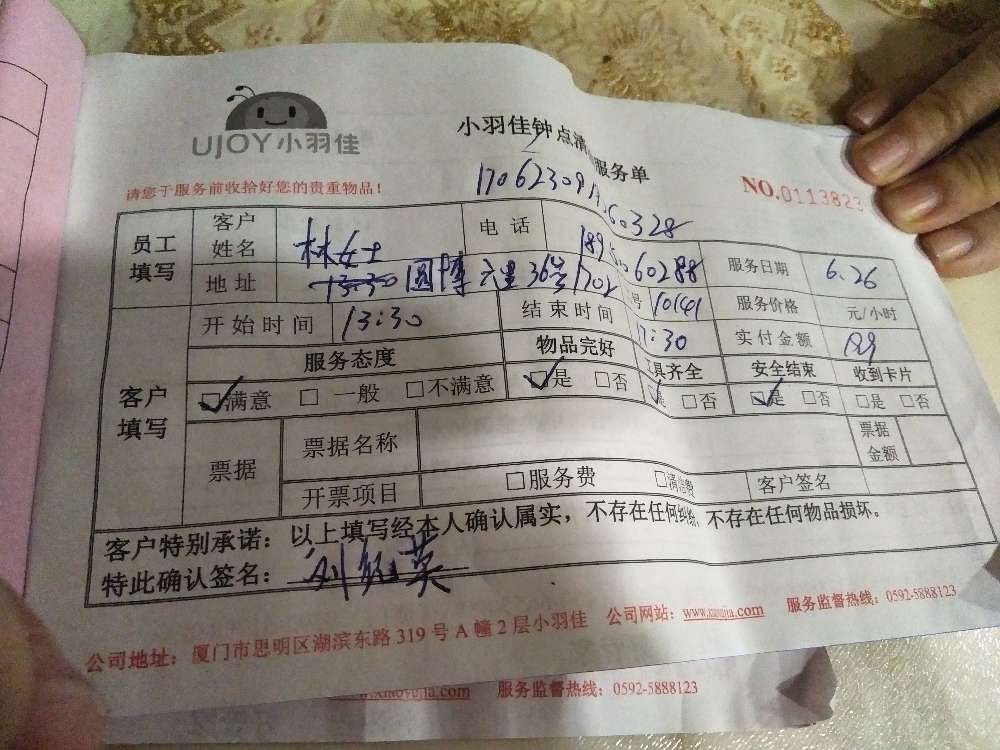 UJOY小羽佳
小羽佳钟点清 服务单
请您于服务前收拾好您的贵重物品！
NO.0113823
员工填写 客户姓名 林女士 电话
地址 13:30 园博六里36号1702 服务日期 6.26
客户填写 开始时间 13:30 结束时间 17:30 号 服务价格 元/小时
服务态度 物品完好 具齐全 实付金额 安全结束 收到卡片
☑满意 □一般 □不满意 ☑是 □否 ☑是 □否 ☑是 □否 □是 □否
票据 票据名称 票据金额
开票项目 □服务费 □清洁费 客户签名
客户特别承诺：以上填写经本人确认属实，不存在任何纠纷，不存在任何物品损坏。
特此确认签名：
公司地址：厦门市思明区湖滨东路319号A幢2层小羽佳 公司网站：www.xiaoyujia.com 服务监督热线：0592-5888123
www.xiaoyujia.com 服务监督热线：0592-5888123